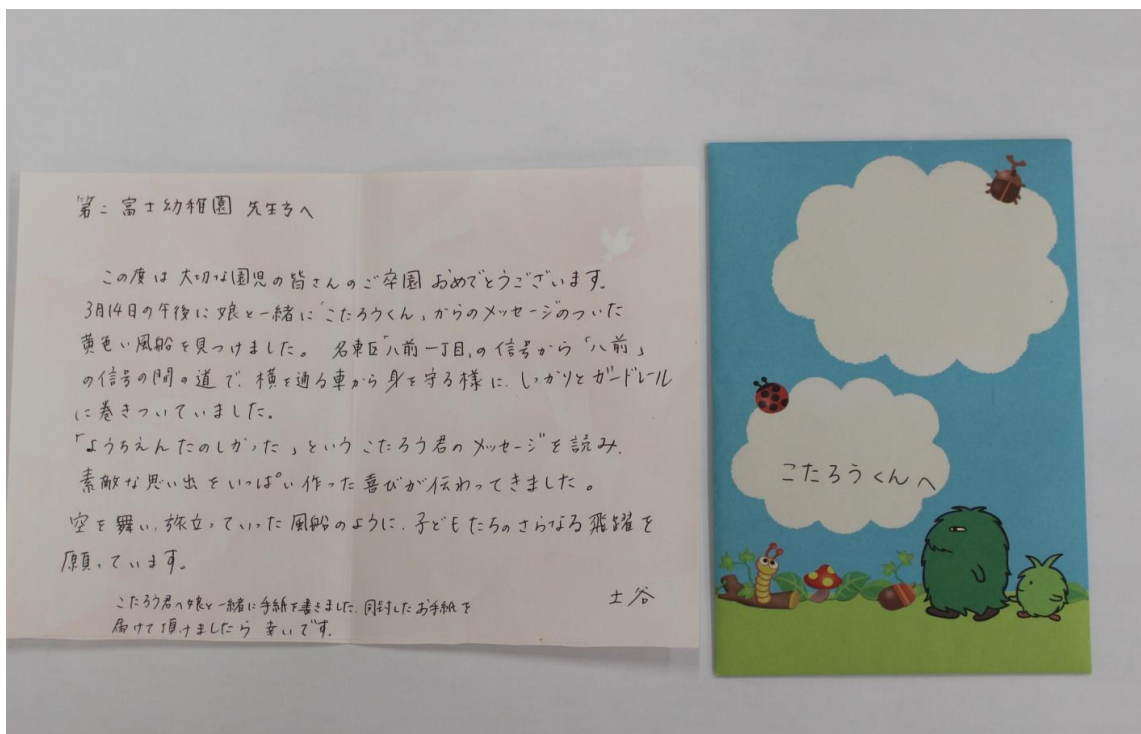 第二富士幼稚園 先生方へ
この度は大切な園児の皆さんのご卒園おめでとうございます。
3月14日の午後に娘と一緒に「こたろうくん」からのメッセージのついた
黄色い風船を見つけました。 名東区「八前一丁目」の信号から「八前」
の信号の間の道で、横を通る車から身を守る様に、しっかりとガードレール
に巻きついていました。
「ようちえんたのしかった」というこたろう君のメッセージを読み、
素敵な思い出をいっぱい作った喜びが伝わってきました。
空を舞い、旅立っていった風船のように、子どもたちのさらなる飛躍を
願っています。
土谷
こたろう君へ娘と一緒に手紙を書きました。同封したお手紙を
届けて頂けましたら幸いです。
こたろうくんへ